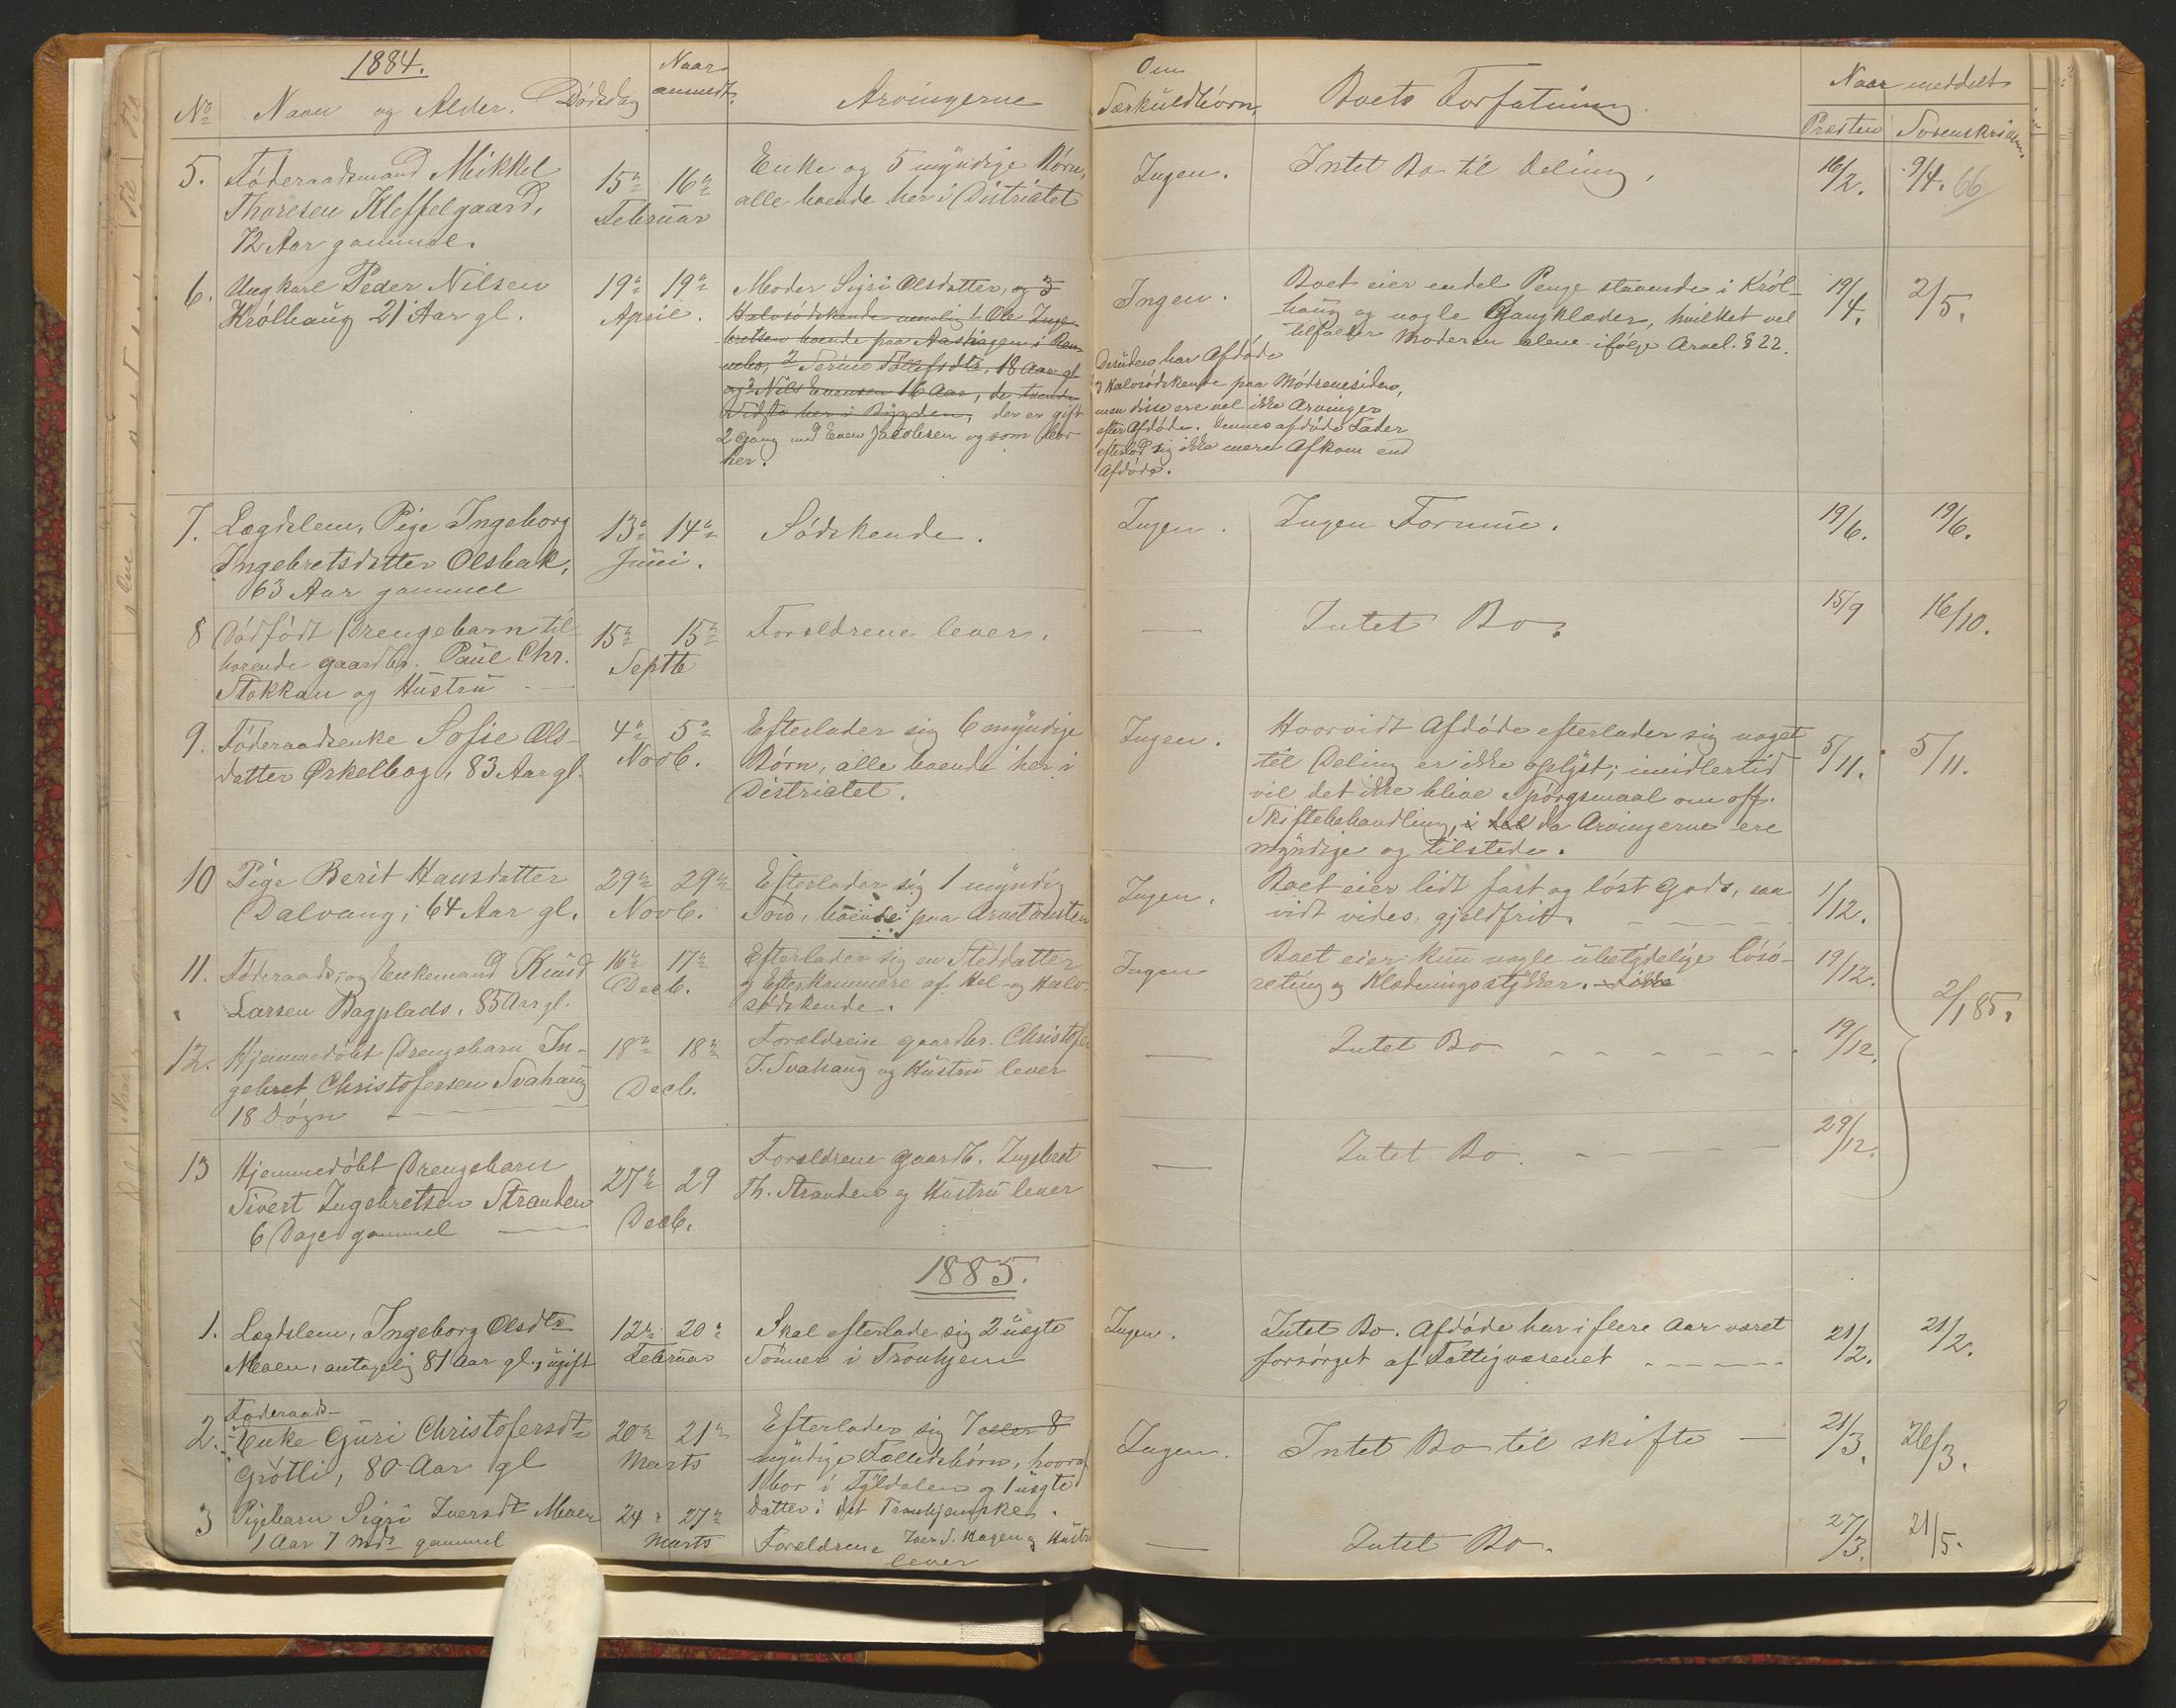 1884.
No Navn og Alder. Dödsdag Naar anmeldt. Arvingerne
5. Föderaadsmand Mikkel
Thoresen Kleffelgaard,
72 Aar gammel.
15de 16de
Februar
Enke og 5 myndige Börn,
alle boende her i Districtet
6. Ungkarl Peder Nilsen
Krölhaug 21 Aar gl.
19de 19de
April.
Moder Sigri Olsdatter, og 3
Halvsödskende nemlig 1 Ole Inge-
bretsen boende paa Aashagen i Ren-
nebo, 2 Serine Tollefsdtr, 18 Aar gl
og 3 Nils Evensen 16 Aar, de tvende
sidste her i Bygden, der er gift
2 Gang med Even Jacobsen og som bor
her.
7. Lægdslem, Pige Ingeborg
Ingebretsdatter Olsbak,
63 Aar gammel
13de 14de
Juni.
Södskende.
8 Dödfödt Drengebarn til-
hörende gaardbr. Paul Chr.
Stokkan og Hustru
15de 15de
Septb
Forældrene lever.
9. Föderaadsenke Sofie Ols-
datter Ørkelbog, 83 Aar gl.
4de 5de
Novb.
Efterlader sig 6 myndige
Börn, alle boende her i
Districtet.
10 Pige Berit Hansdatter
Dalvang, 64 Aar gl.
29de 29de
Novb.
Efterlader sig 1 myndig
Sön, boende paa
11. Föderaads- og Enkemand Knud
Larsen Bagplads, 85 Aar gl.
16de 17de
Decb.
Efterlader sig en Steddatter
og Efterkommere af Hel- og Halv-
södskende.
12. Hjemmedöbt Drengebarn In-
gebret Christofersen Svahaug
18 Dögn
18de 18de
Decb.
Forældrene gaardbr. Christofer
J. Svahaug og Hustru lever
13 Hjemmedöbt Drengebarn
Sivert Ingebretsen Stranden
6 Dage gammel
27de 29
Decb.
Forældrene gaardb. Ingebret
Th. Stranden og Hustru lever
1885.
1. Lægdslem, Ingeborg Olsdtr
Moen, antagelig 81 Aar gl., ugift
12de 20de
Februar
Skal efterlade sig 2 uægte
Sönner i Tronhjem
Föderaads-
2. Enke Guri Christofersdtr
Grötli, 80 Aar gl
20de 21de
Marts
Efterlader sig 7 eller 8
myndige Fælledsbörn, hvoraf
1 bor i Tyldalen og 1 uægte
datter i det Tronhjemske.
3 Pigebarn Sigri Iversdt Moen
1 Aar 7 Mdr gammel
24de 27de
Marts
Forældrene Iver S. Hagen og Hustru
lever
Om
Særkuldbörn. Boets Forfatning. Naar meddelt
Præsten Sorenskriveren.
Ingen. Intet Bo til Deling. 16/2. 9/4. 66
Ingen. Boet eier endel Penge staaende i Kröl-
haug og nogle Gangklæder, hvilket vel
tilfalder Moderen alene ifölge Arvel. § 22.
19/4. 2/5.
Desuden har Afdöde
3 Halvsödskende paa Mödrenesiden,
men disse ere vel ikke Arvinger
efter Afdöde. Dennes afdöde Fader
efterlod sig ikke mere Afkom end
Afdöde.
Ingen. Ingen Formue. 19/6. 19/6.
— Intet Bo. 15/9 16/10.
Ingen. Hvorvidt Afdöde efterlader sig noget
til Deling er ikke oplyst; imidlertid
vil det ikke blive Spörgsmaal om off.
Skiftebehandling, da Arvingerne ere
myndige og tilstede.
5/11. 5/11.
Ingen. Boet eier lidt fast og löst Gods, saa
vidt vides, gjeldfrit.
1/12.
Ingen Boet eier kun nogle ubetydelige lösö-
reting og Klædningsstykker.
19/12.
2/1 85.
— Intet Bo 19/12.
— Intet Bo. 29/12.
Ingen. Intet Bo. Afdöde har i flere Aar været
forsörget af Fattigvæsenet
21/2. 21/2.
Ingen. Intet Bo til skifte — 21/3. 26/3.
— Intet Bo. 27/3. 21/5.